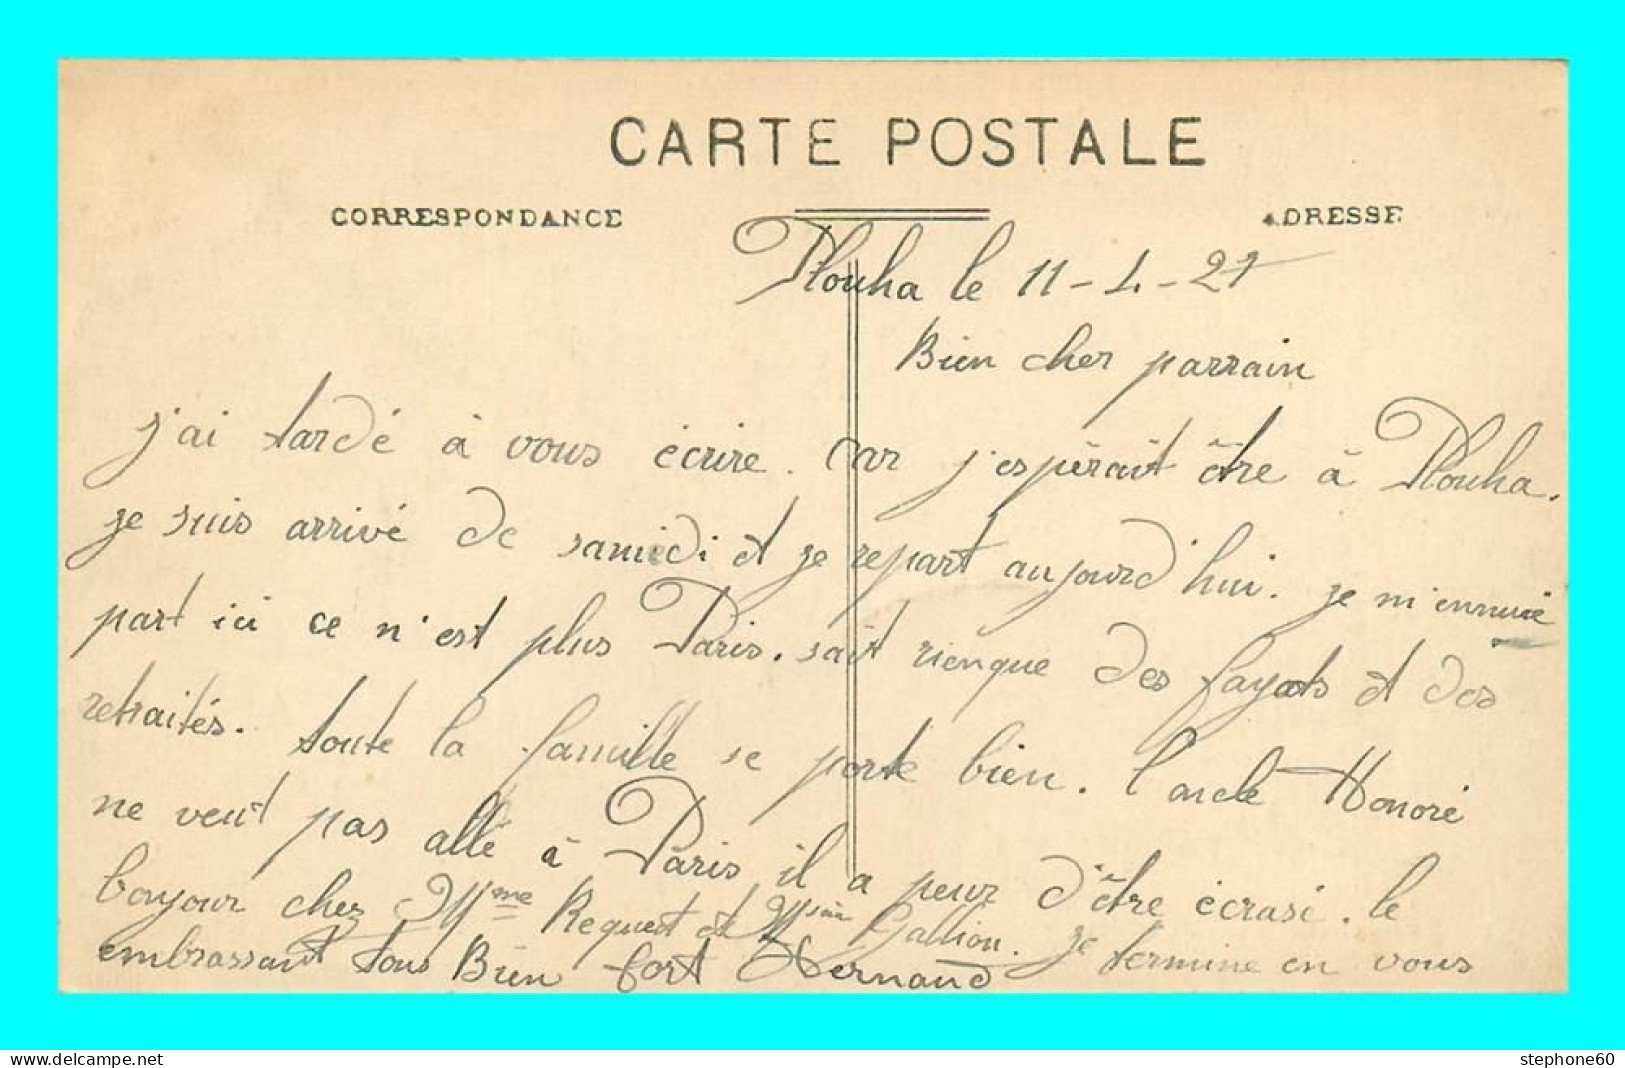 CARTE POSTALE
CORRESPONDANCE
ADRESSE
Plouha le 11-4-27
Bien cher parrain
j'ai tardé à vous écrire. Car j'espérait être à Plouha.
je suis arrivé de samedi et je repart aujourd'hui. je m'ennuie
part ici ce n'est plus Paris. sait rienque des fayots et des
retraités. toute la famille se porte bien. l'oncle Honoré
ne veut pas allé à Paris il a peur d'être écrasé. le
bonjour chez Mme Request et Gallion. je termine en vous
embrassant tous Bien fort Fernand
delcampe.net
stephone60